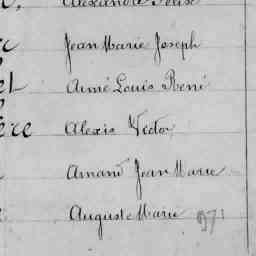 Alexandre Félix
Jean Marie Joseph
Aimé Louis René
ère Alexis Victor
Amand Jean Marie
Auguste Marie 971